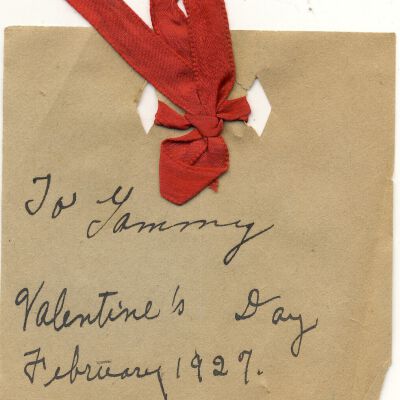 To
Valentine's Day
February 1927.